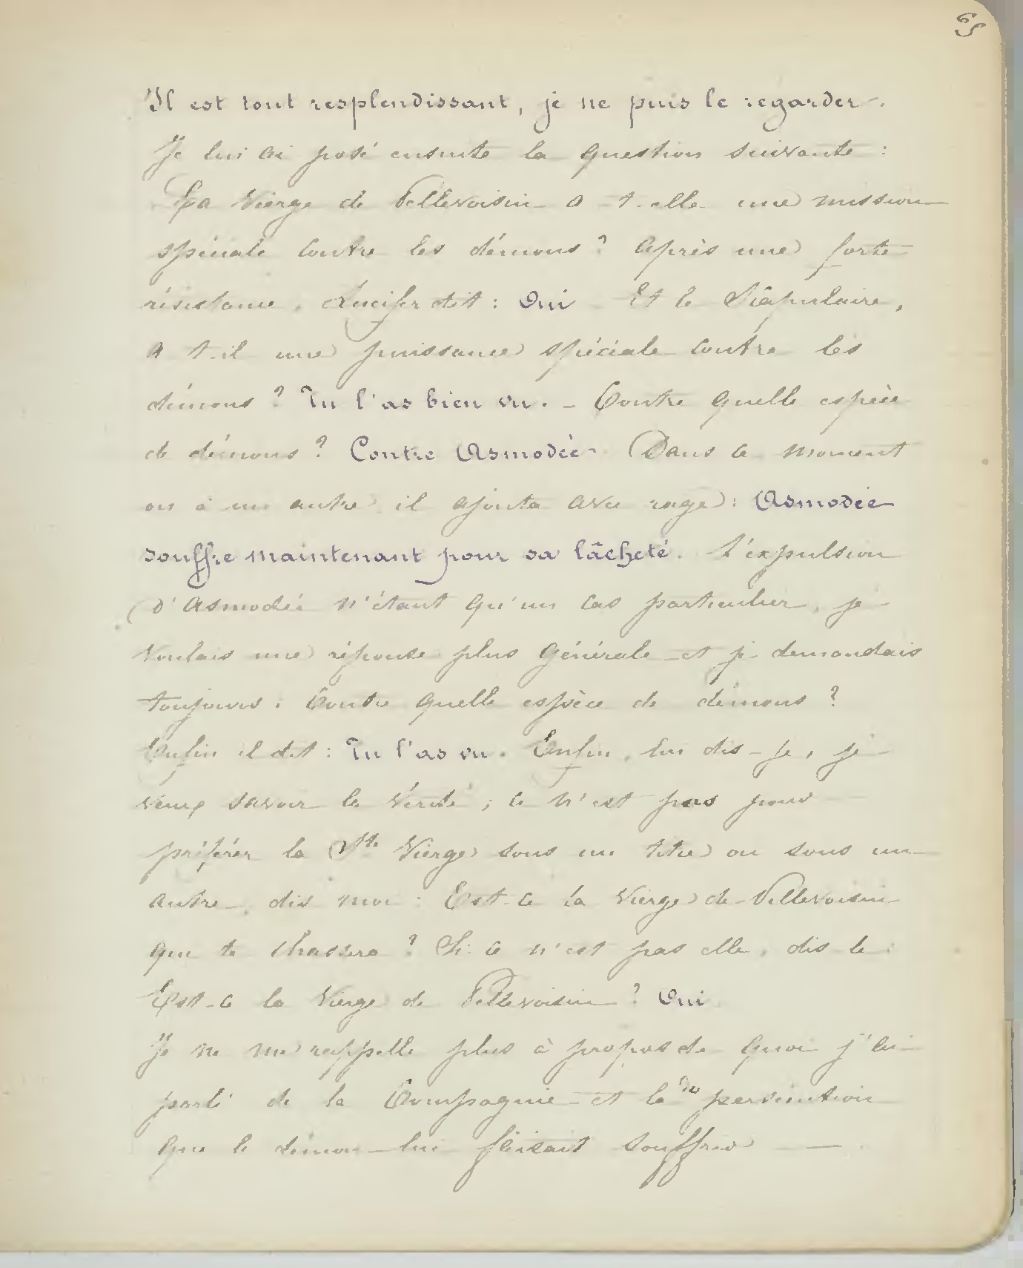 65
Il est tout resplendissant, je ne puis le regarder.
Je lui ai posé ensuite la question suivante :
La Vierge de Pellevoisin a-t-elle une mission
spéciale contre les démons ? Après une forte
résistance, Lucifer dit : Oui – Et le Scapulaire,
a t-il une puissance spéciale contre les
démons ? Tu l'as bien vu. – Contre quelle espèce
de démons ? Contre Asmodée. Dans ce moment
ou à un autre il ajouta avec rage : Asmodée
souffre maintenant pour sa lâcheté. L'expulsion
d'Asmodée n'étant qu'un cas particulier, je
voulais une réponse plus générale et je demandais
toujours : Contre quelle espèce de démons ?
Enfin il dit : Tu l'as vu. Enfin, lui dis-je, je
veux savoir la vérité ; ce n'est pas pour
préférer la Ste Vierge sous un titre ou sous un
autre, dis moi : Est-ce la Vierge de Pellevoisin
qui te chassera ? Si ce n'est pas elle, dis le.
Est-ce la Vierge de Pellevoisin ? Oui
Je ne me rappelle plus à propos de quoi j'ai
parlé de la Compagnie et la persécution
que le démon lui faisait souffrir —